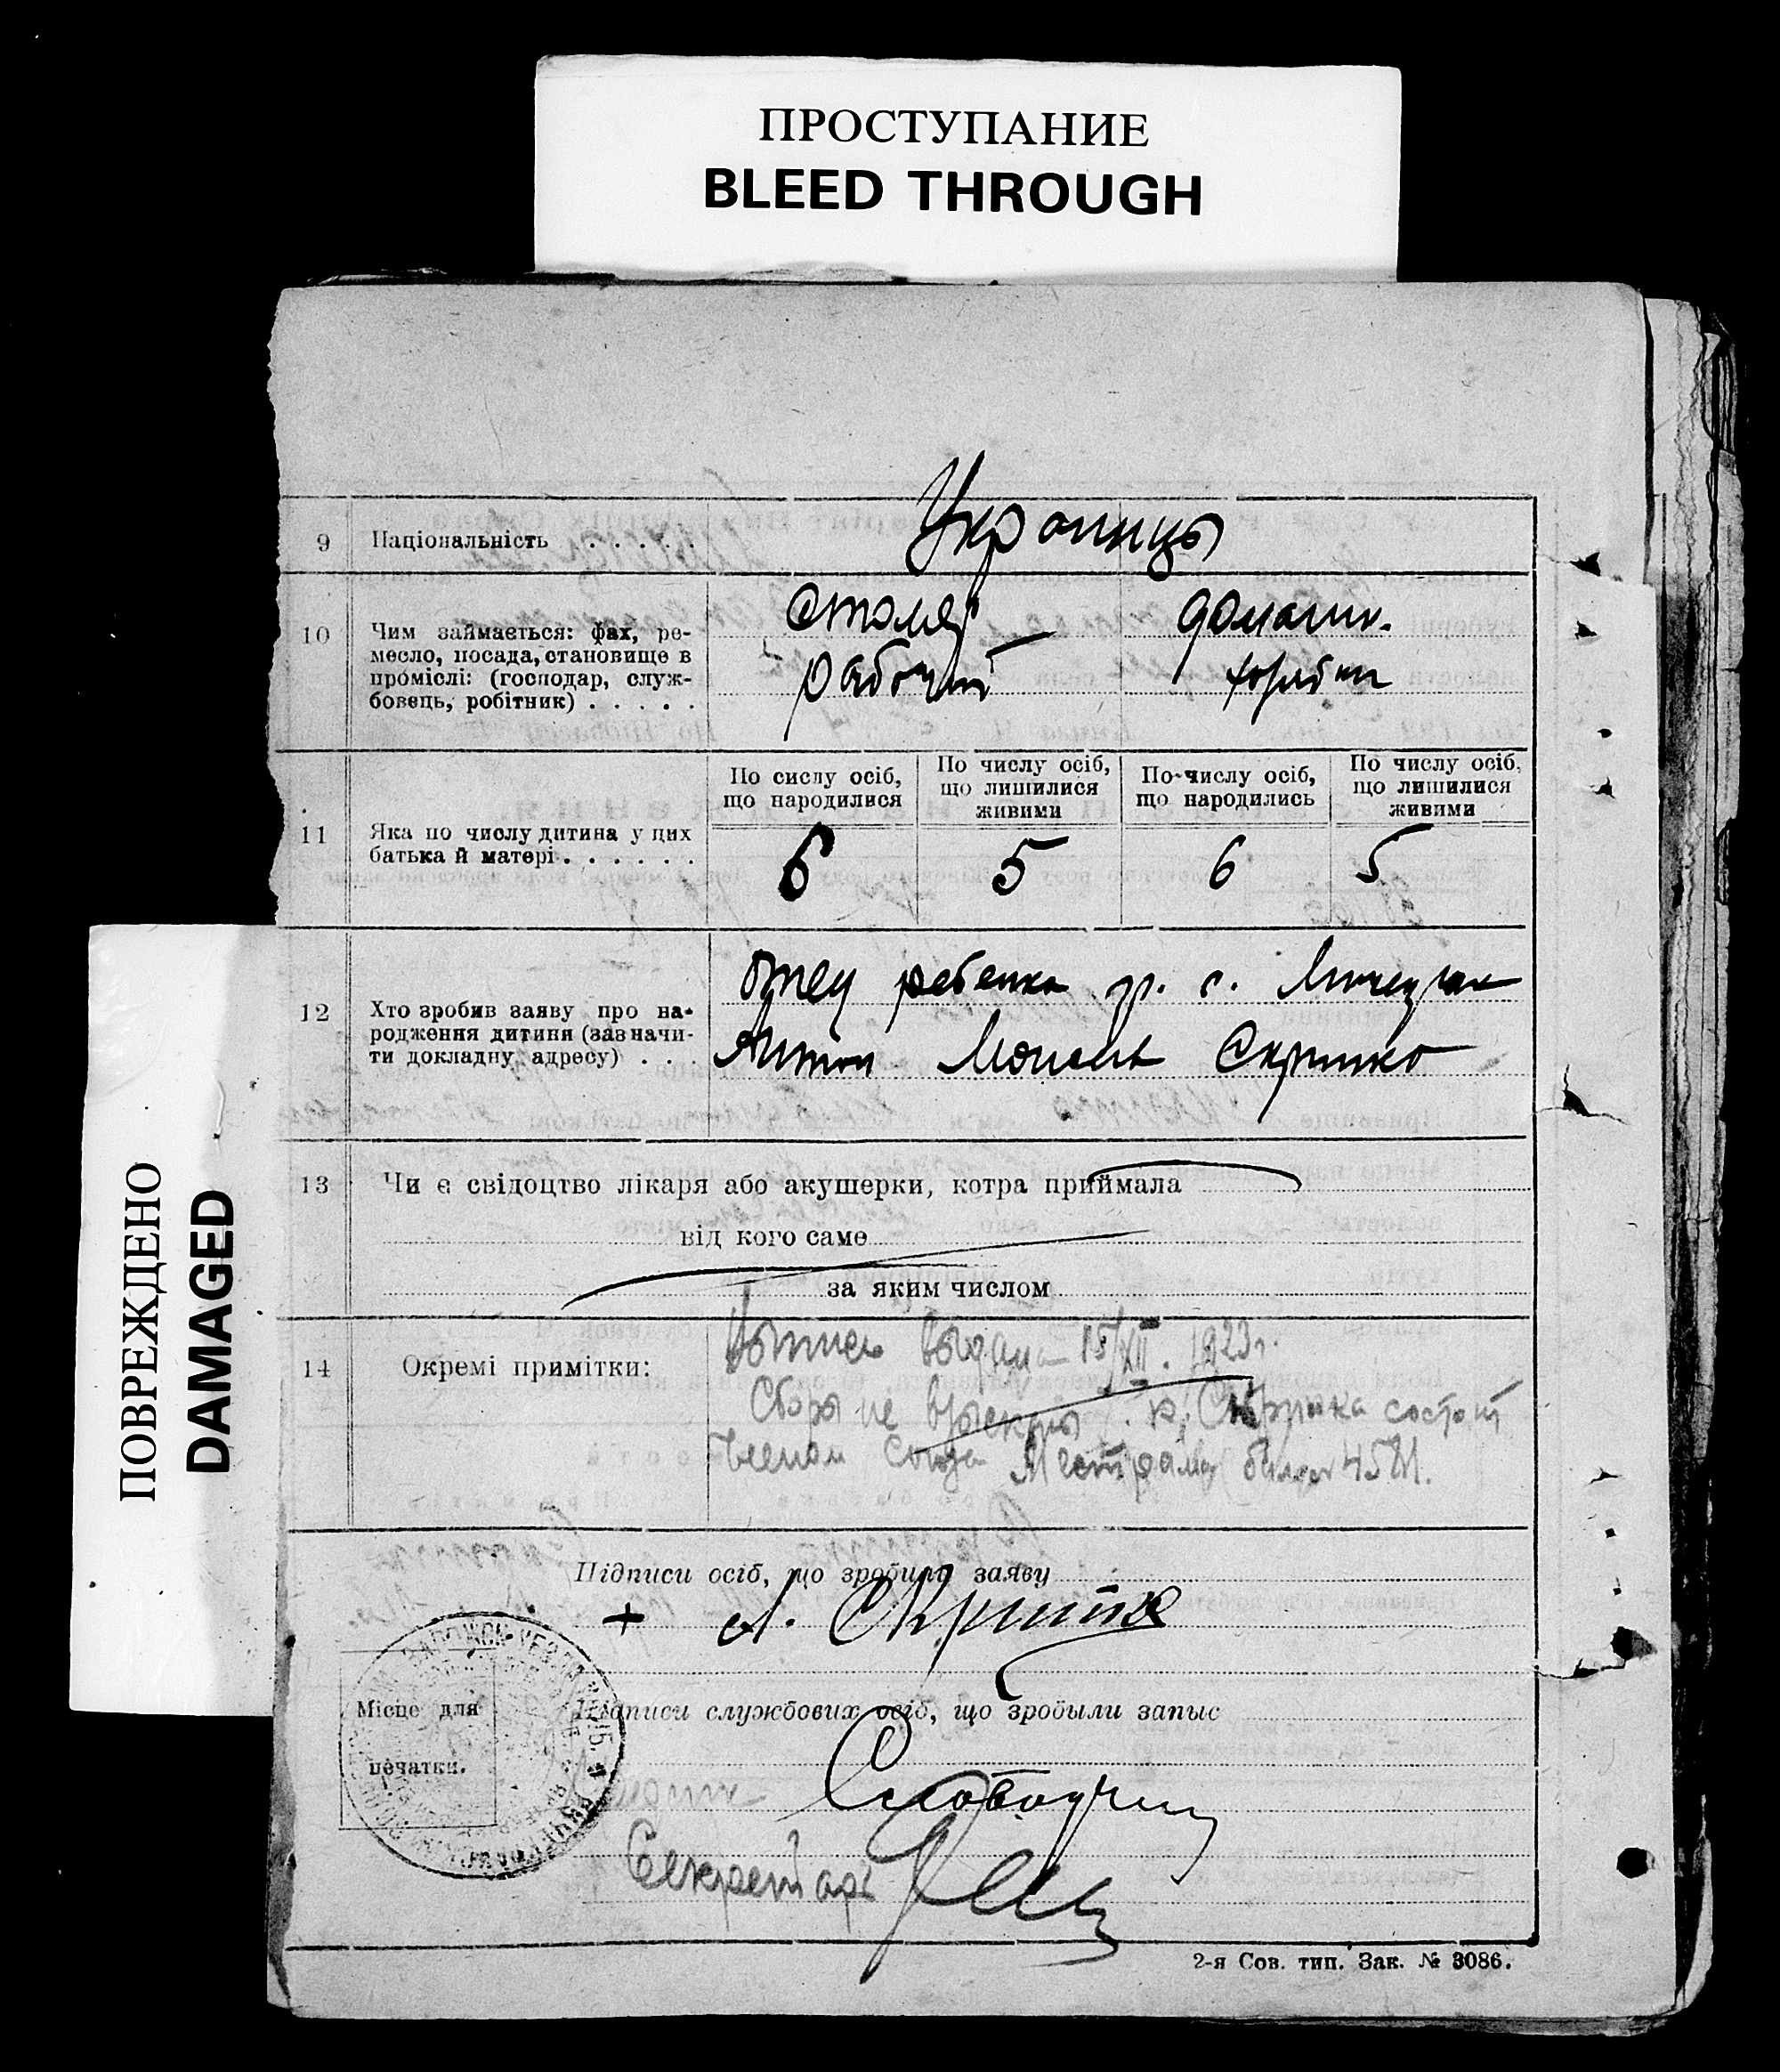 ПРОСТУПАНИЕ
BLEED THROUGH
ПОВРЕЖДЕНО
DAMAGED
9 Національність . . . . .
Украинцы
10 Чим займається: фах, ре-
месло, посада, становище в
проміслі: (господар, служ-
бовець, робітник) . . . . .
столяр
рабочий
домашн.
11 Яка по числу дитина у цих
батька й матері . . . . . .
По сислу осіб,
що народилися
По числу осіб,
що лишилися
живими
По числу осіб,
що народились
По числу осіб,
що лишилися
живими
6 5 6 5
12 Хто зробив заяву про на-
родження дитини (зазначи-
ти докладну адресу) . . .
Отец ребенка гр. с.
Антон Скрипко
13 Чи є свідоцтво лікаря або акушерки, котра приймала
від кого саме
за яким числом
14 Окремі примітки:
Выпись выдана 15/XII. 1923 г.
Сбора не состоит
членом союза билет
Підписи осіб, що зробили заяву
+ А. Скрипка
Місце для
печатки.
Підписи службових осіб, що зробыли запыс
Секретарь
2-я Сов. тип. Зак. № 3086.